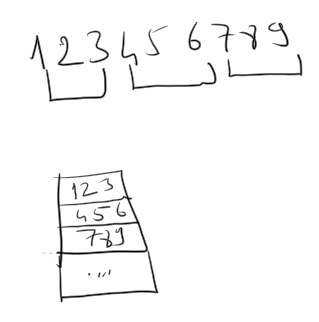 123 456 789
123
456
789
....